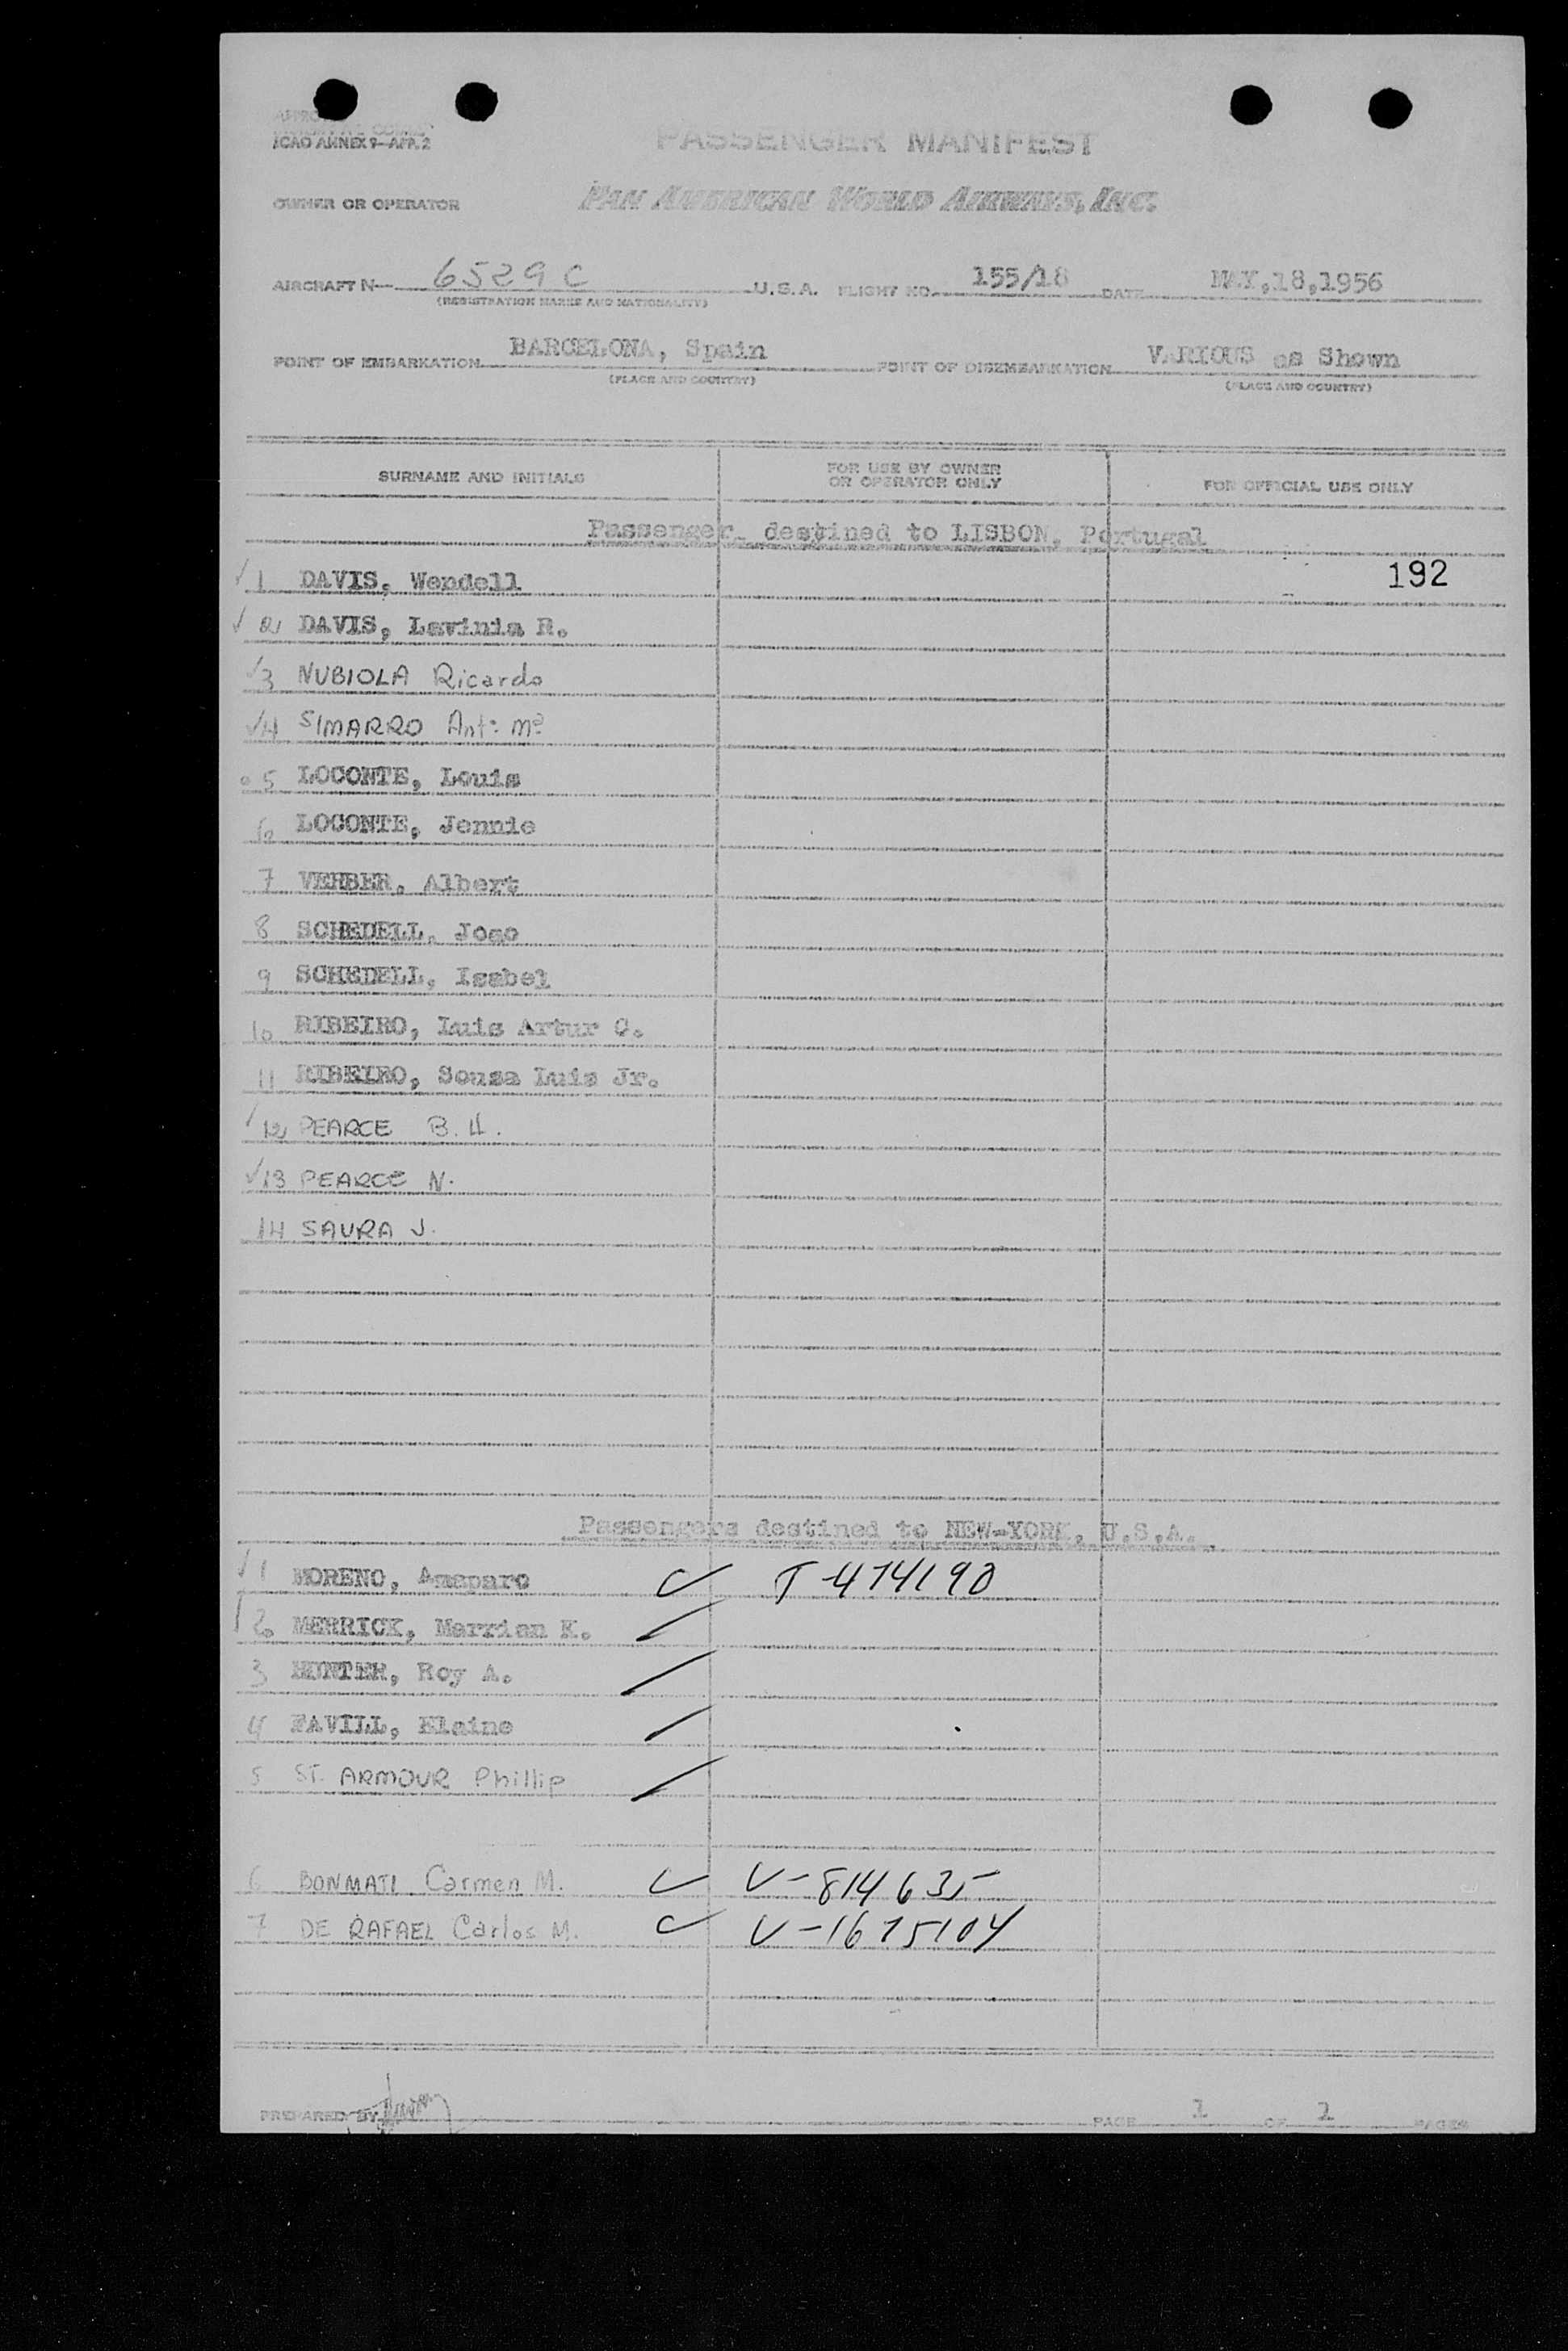 ICAO ANNEX 9-APP. 2
PASSENGER MANIFEST
OWNER OR OPERATOR PAN AMERICAN WORLD AIRWAYS, INC.
AIRCRAFT N— 6529 C U.S.A. FLIGHT NO. 155/18 DATE MAY,18,1956
(REGISTRATION MARKS AND NATIONALITY)
POINT OF EMBARKATION BARCELONA, Spain POINT OF DISEMBARKATION VARIOUS as Shown
(PLACE AND COUNTRY) (PLACE AND COUNTRY)
SURNAME AND INITIALS FOR USE BY OWNER OR OPERATOR ONLY FOR OFFICIAL USE ONLY
Passenger destined to LISBON, Portugal
192
1 DAVIS, Wendell
2 DAVIS, Lavinia R.
3 NUBIOLA Ricardo
4 SIMARRO Antº Mª
5 LOCONTE, Louis
6 LOCONTE, Jennie
7 VERBER, Albert
8 SCHEDELL, Joao
9 SCHEDELL, Isabel
10 RIBEIRO, Luis Artur C.
11 RIBEIRO, Sousa Luis Jr.
12 PEARCE B. H.
13 PEARCE N.
14 SAURA J.
Passengers destined to NEW-YORK, U.S.A.
1 MORENO, Amaparo T-474190
2 MERRICK, Marrian K.
3 HUNTER, Roy A.
4 FAVILL, Elaine
5 ST. ARMOUR Phillip
6 BONMATI Carmen M. V-814635
7 DE RAFAEL Carlos M. V-1675104
PREPARED BY PAGE 1 OF 1 PAGES